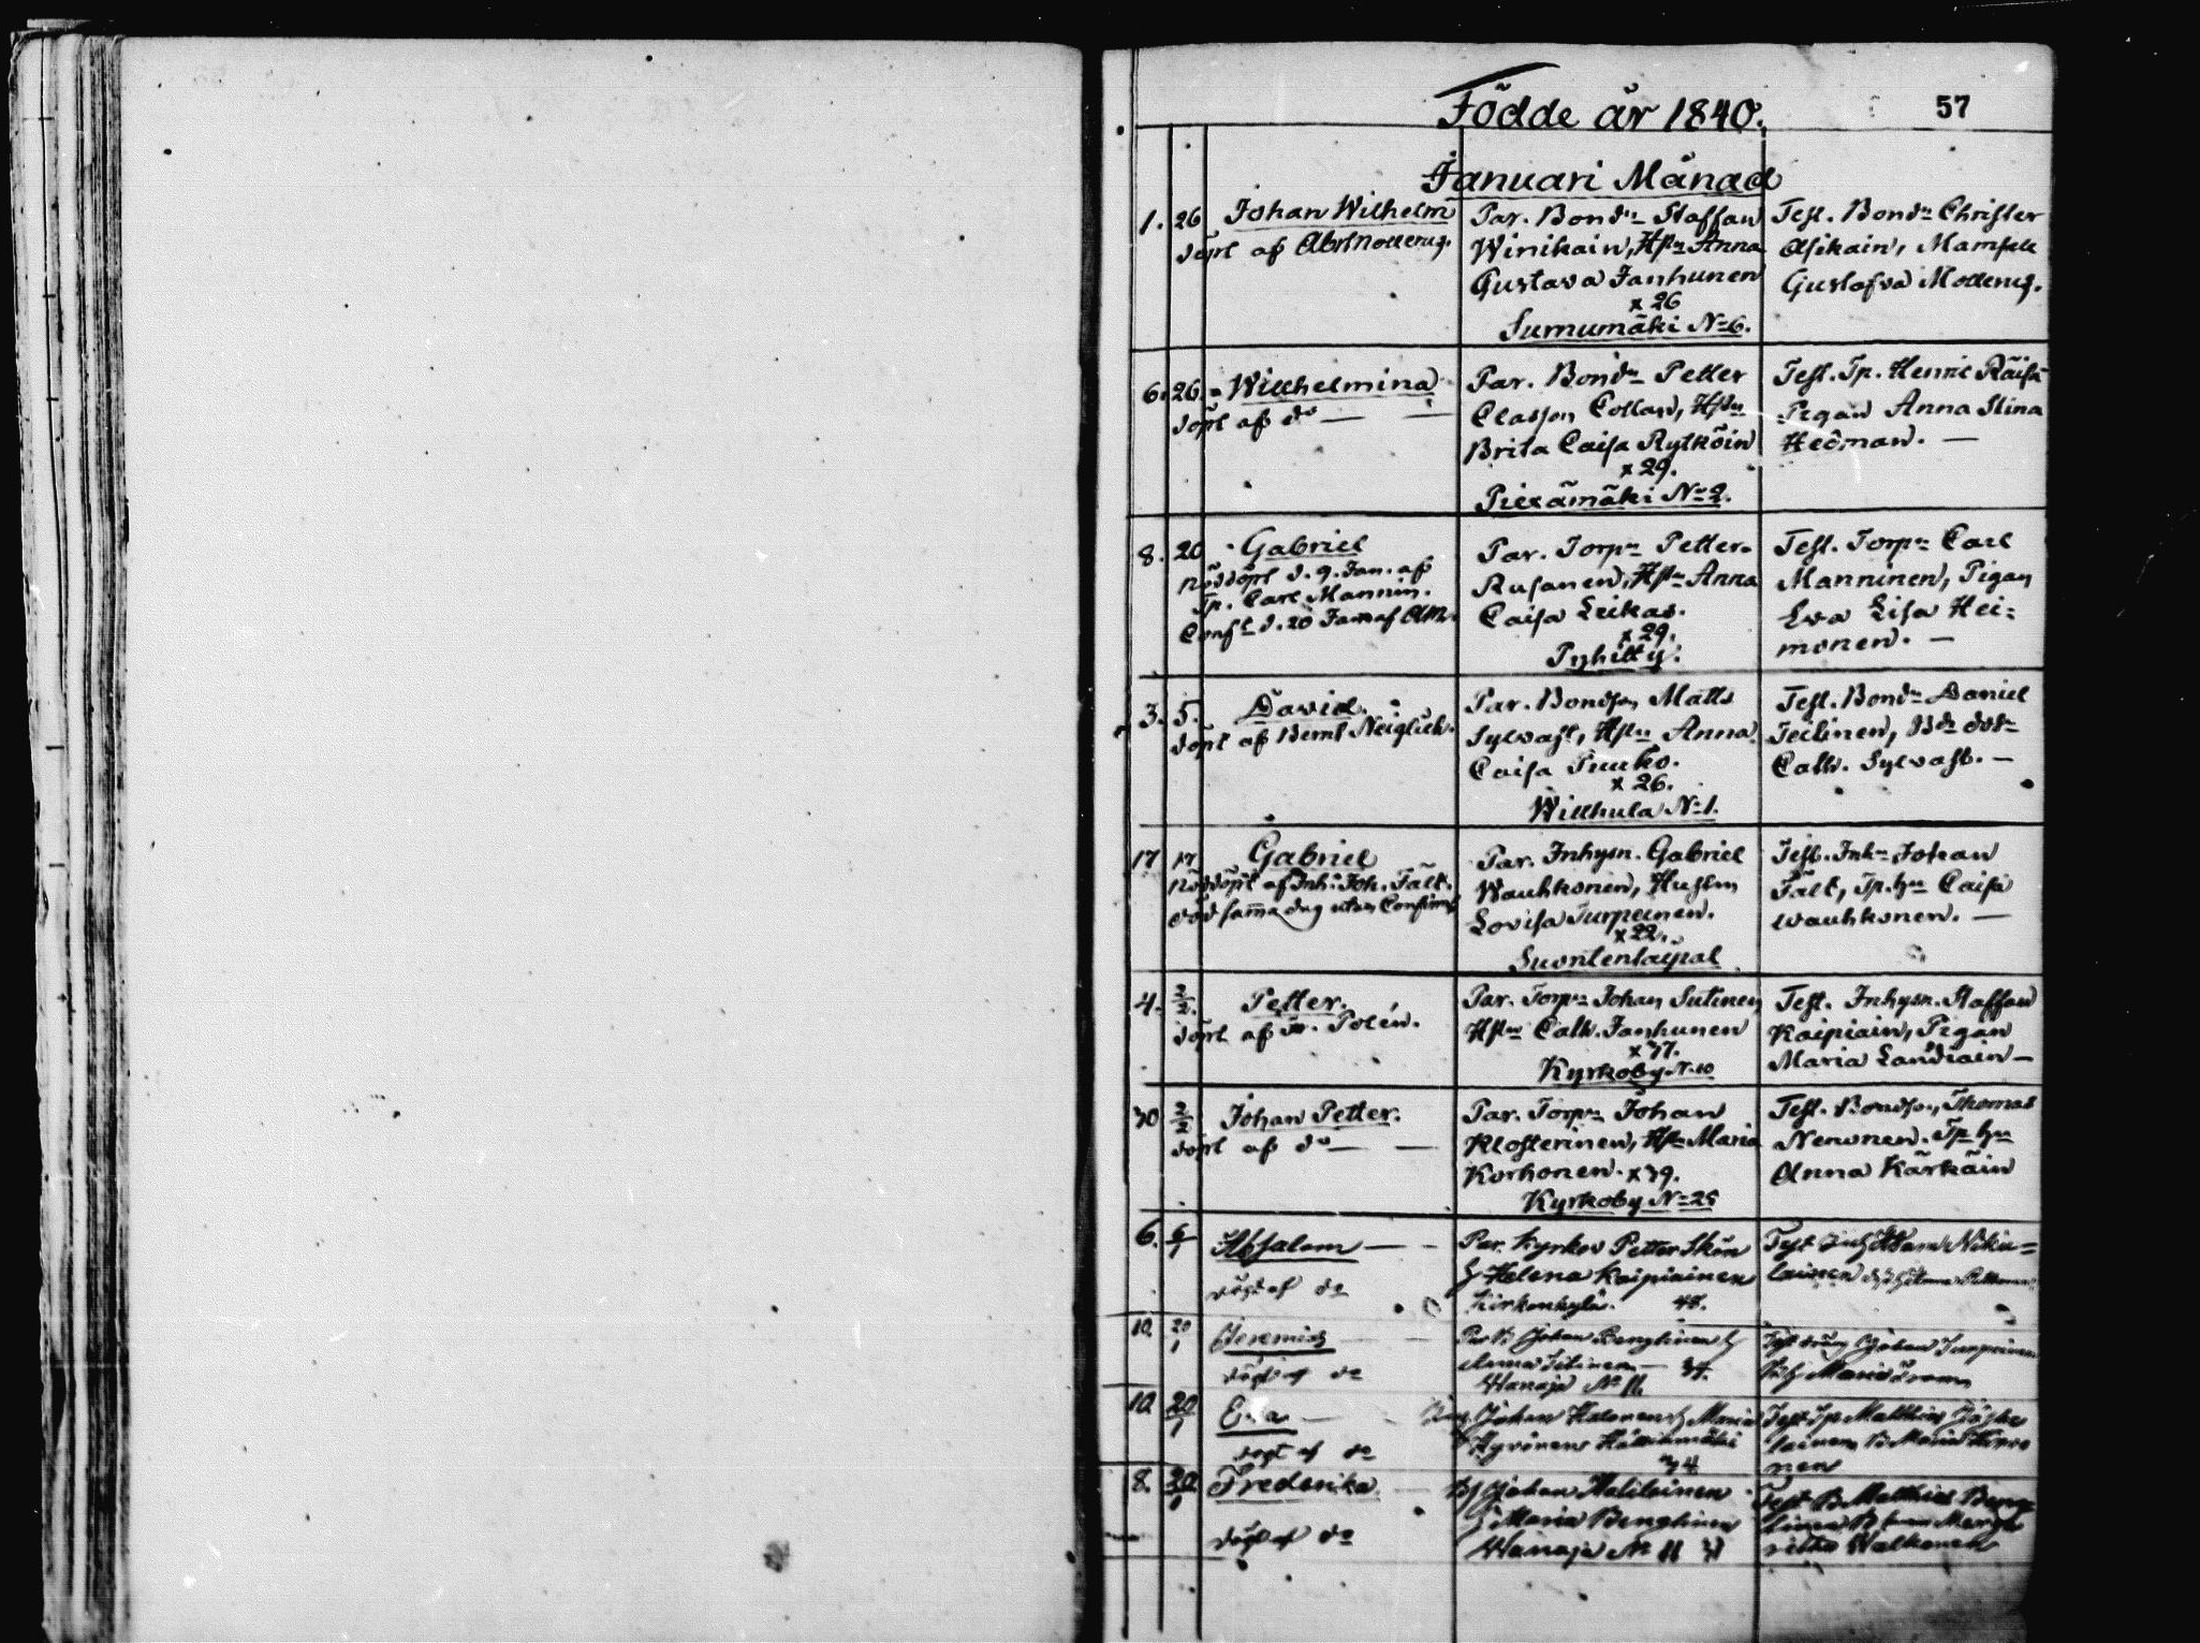 57
Födde år 1840.
Januari Månad
1. 26 Johan Wilhelm
döpt af Abr. Molleruq.
Par. Bondn Staffan
Winikain, Hstn Anna
Gustava Janhunen
x 26
Sumumäki No 6.
Test. Bondn Christer
Asikain, Mamsell
Gustafva Molleruq.
6. 26. Willhelmina
döpt af do —
Par. Bondn Petter
Classon Collan, Hstn
Brita Caisa Rytköin
x 29.
Piexämäki No 2.
Test. Tp. Henric Räisä
Pigan Anna Stina
Hedman. —
8. 20 Gabriel
nöddöpt d. 9. Jan. af
Tp. Carl Mannin.
Conft d. 20 Jan af AM.
Par. Torpn Petter
Rusanen, Hstn Anna
Caisa Leikas.
x 29.
Pyhitty.
Test. Torpn Carl
Manninen, Pigan
Eva Lisa Hei-
monen. —
3. 5. David.
döpt af Bernt Neiglick.
Par. Bondson Matts
Sylvast, Hstn Anna
Caisa Puuko.
x 26.
Willhula No 1.
Test. Bondn Daniel
Teilinen, Bdr dotr
Cath. Sylvast. —
17 17 Gabriel
Nöddöpt af Inh. Joh. Fält.
död samma dag utan Confirm
Par. Inhysn. Gabriel
Wauhkonen, Hustru
Lovisa Turpeinen.
x 22.
Suontentaipal
Test. Inhn Johan
Fält, Tp. hu Caisa
Wauhkonen. —
4. 2/2. Petter.
döpt af Fr. Polén.
Par. Torpn Johan Sutinen
Hstn Cath. Janhunen
x 37.
Kyrkoby N. 10
Test. Inhysn. Staffan
Kaipiain, Pigan
Maria Landiain —
30 2/2 Johan Petter.
döpt af do —
Par. Torpn Johan
Klosterinen, Hstn Maria
Korhonen. x 39.
Kyrkoby No 25
Test. Bondson Thomas
Nenonen. Tp hu
Anna Kärkäin
6. 6/1 Absalom —
döpt af do
Par. Kyrkov Petter Skön
H Helena Kaipiainen
Kirkonkylä. 48.
Test Adam Niku-
lainen
10. 20/1 Jeremias
döpt af do
Par B Johan Benghinen H
Anna Teitinen —
Hanaja No 11.
Test dräng Johan Turpeinen
Maria
10 20/1 Eva —
döpt af do
Johan Halonen H Maria
Hyvönen
34
Test Tp Matthias
lainen B Maria
nen
8. 20/1 Frederika —
döpt af do
Bf Johan
H Maria Benghinen
Hanaja No 11
Test B Matthias Beng-
hinen Marga-
retha Walkonen